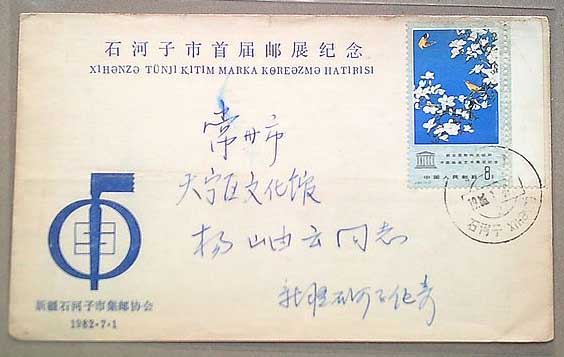 石河子市首届邮展纪念
XIHƏNZƏ TÜNJI KITIM MARKA KɵREƏZMƏ HATIRISI
中国人民邮政 8分
常州市
天宁区文化馆
杨 岫云 同志
新疆石河子
石河子
新疆石河子市集邮协会
1982·7·1